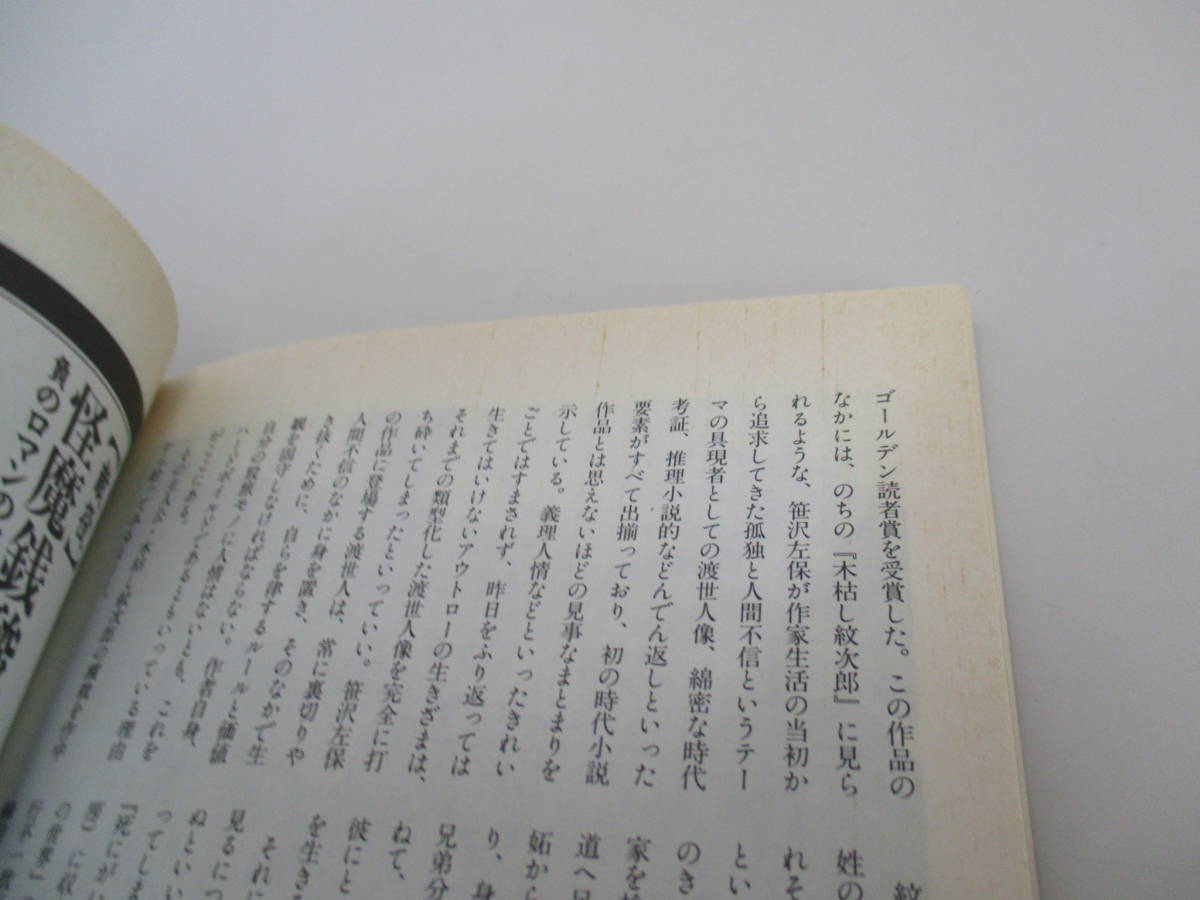 ゴールデン読者賞を受賞した。この作品の
なかには、のちの『木枯し紋次郎』に見ら
れるような、笹沢左保が作家生活の当初か
ら追求してきた孤独と人間不信というテー
マの具現者としての渡世人像、綿密な時代
考証、推理小説的などんでん返しといった
要素がすべて出揃っており、初の時代小説
作品とは思えないほどの見事なまとまりを
示している。義理人情などといったきれい
ごとではすまされず、昨日をふり返っては
生きてはいけないアウトローの生きざまは、
それまでの類型化した渡世人像を完全に打
ち砕いてしまったといっていい。笹沢左保
の作品に登場する渡世人は、常に裏切りや
人間不信のなかに身を置き、そのなかで生
き抜くために、自らを律するルールと価値
観を固守しなければならない。作者自身、
自分の股旅モノに人情はないとも、これを
ハードボイルドであるともいっている理由
がここにある。
紋
姓の
れそ
とい
のさ
家を
道へ
妬か
り、身
兄弟分
ねて、
彼にと
を生き
それに
見るにつ
ぬといい
ってしま
『死にが
房）に収
の世界」
怪魔
負のロマンの